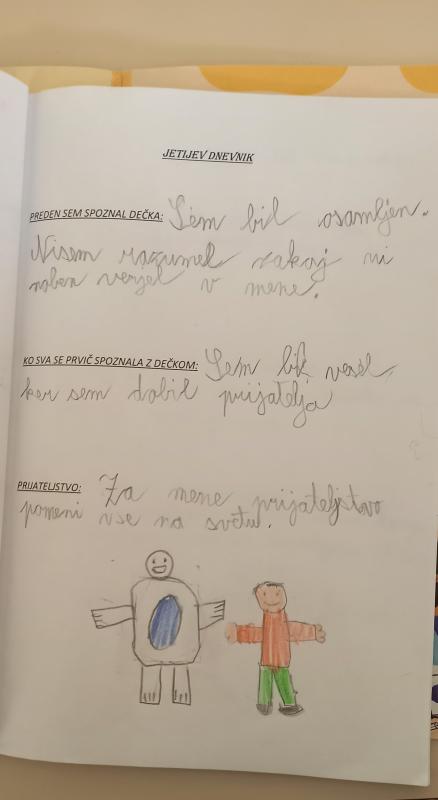 JETIJEV DNEVNIK
PREDEN SEM SPOZNAL DEČKA: Sem bil osamljen.
Nisem razumel zakaj ni
noben verjel v mene.
KO SVA SE PRVIČ SPOZNALA Z DEČKOM: Sem bil vesel
ker sem dobil prijatelja
PRIJATELJSTVO: Za mene prijateljstvo
pomeni vse na svetu.